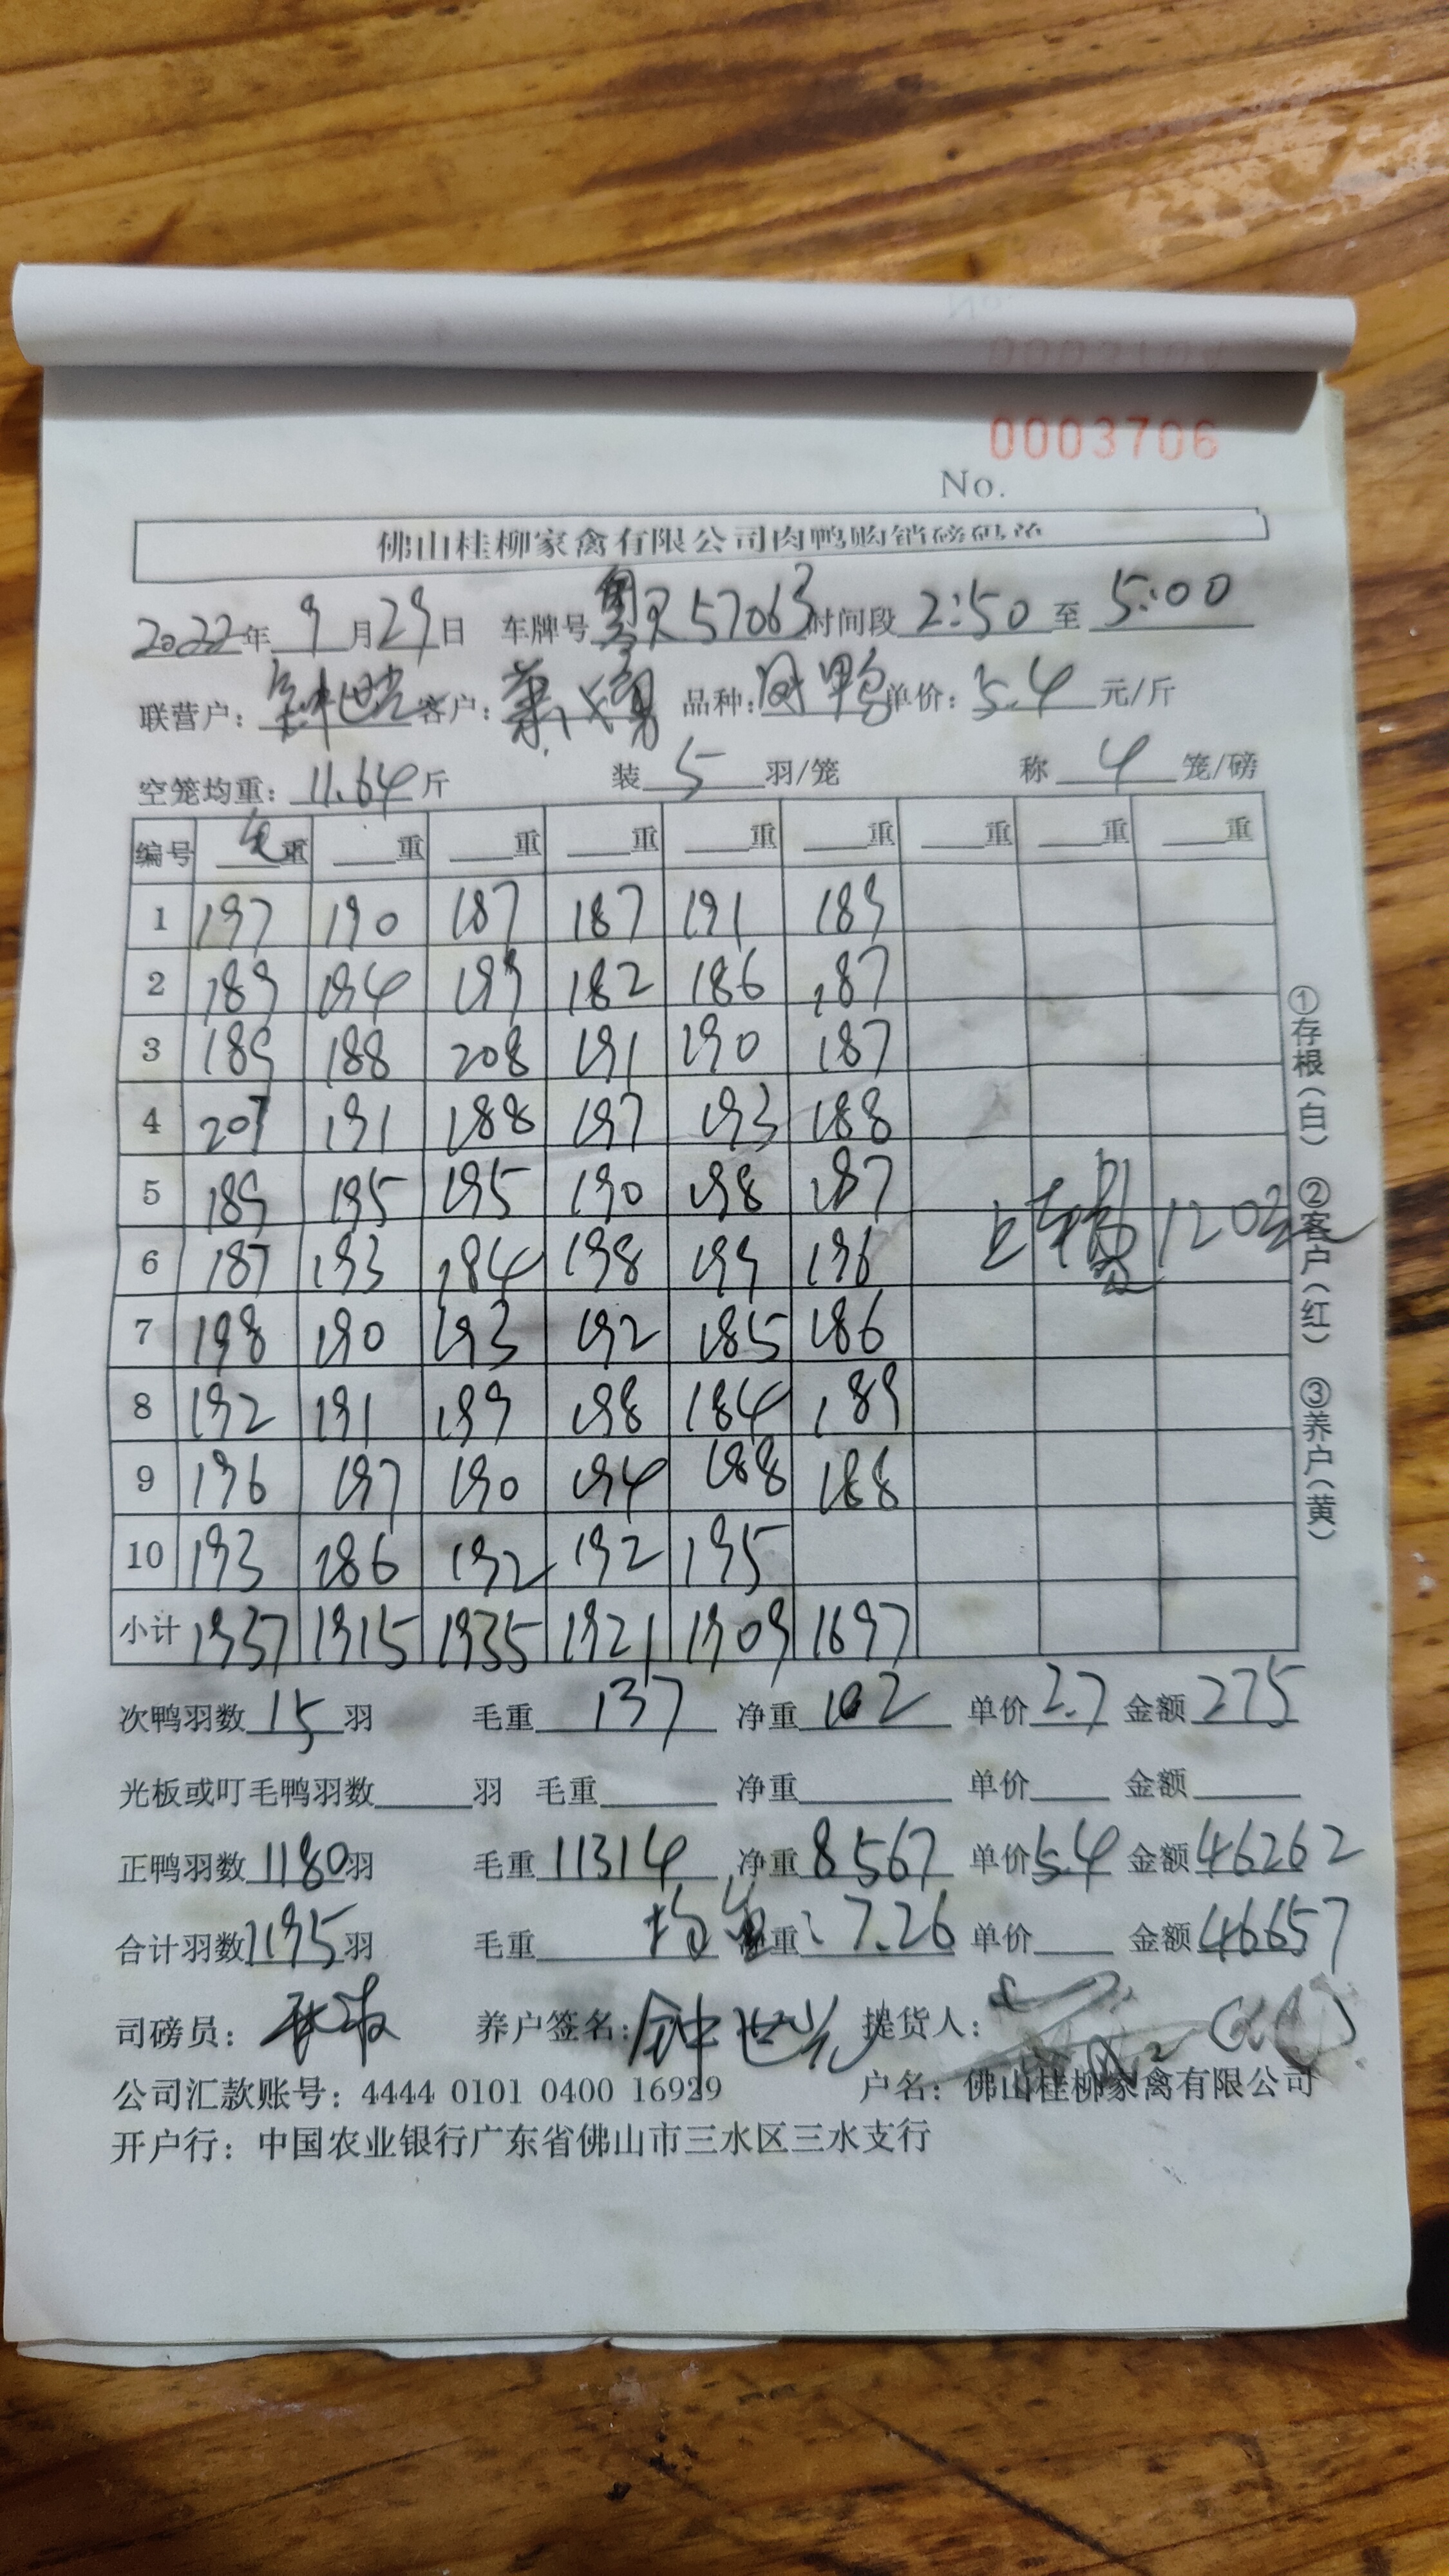 0003706
No.
佛山桂柳家禽有限公司肉鸭购销磅码单
2022年 9 月 29 日 车牌号 57063 时间段 2:50 至 5:00
联营户: 钟世光 客户: 品种: 鸭 单价: 5.4 元/斤
空笼均重: 11.64 斤 装 5 羽/笼 称 4 笼/磅
编号 毛重 重 重 重 重 重 重 重 重
1 197 190 187 187 191 189
2 189 194 199 182 186 187
3 189 188 208 191 190 187
4 207 191 188 197 193 188
5 189 195 195 190 198 187
6 187 193 184 198 199 196
上车费 120元
7 198 190 193 192 185 186
8 192 191 199 198 184 189
9 196 197 190 194 188 188
10 193 186 192 192 195
小计 1937 1915 1935 1921 1909 1697
①存根(白) ②客户(红) ③养户(黄)
次鸭羽数 15 羽 毛重 137 净重 102 单价 2.7 金额 275
光板或叮毛鸭羽数 羽 毛重 净重 单价 金额
正鸭羽数 1180 羽 毛重 11314 净重 8567 单价 5.4 金额 46262
合计羽数 1195 羽 毛重 均重: 净重 7.26 单价 金额 46657
司磅员: 养户签名: 钟世光 提货人:
公司汇款账号: 4444 0101 0400 16929 户名: 佛山桂柳家禽有限公司
开户行: 中国农业银行广东省佛山市三水区三水支行